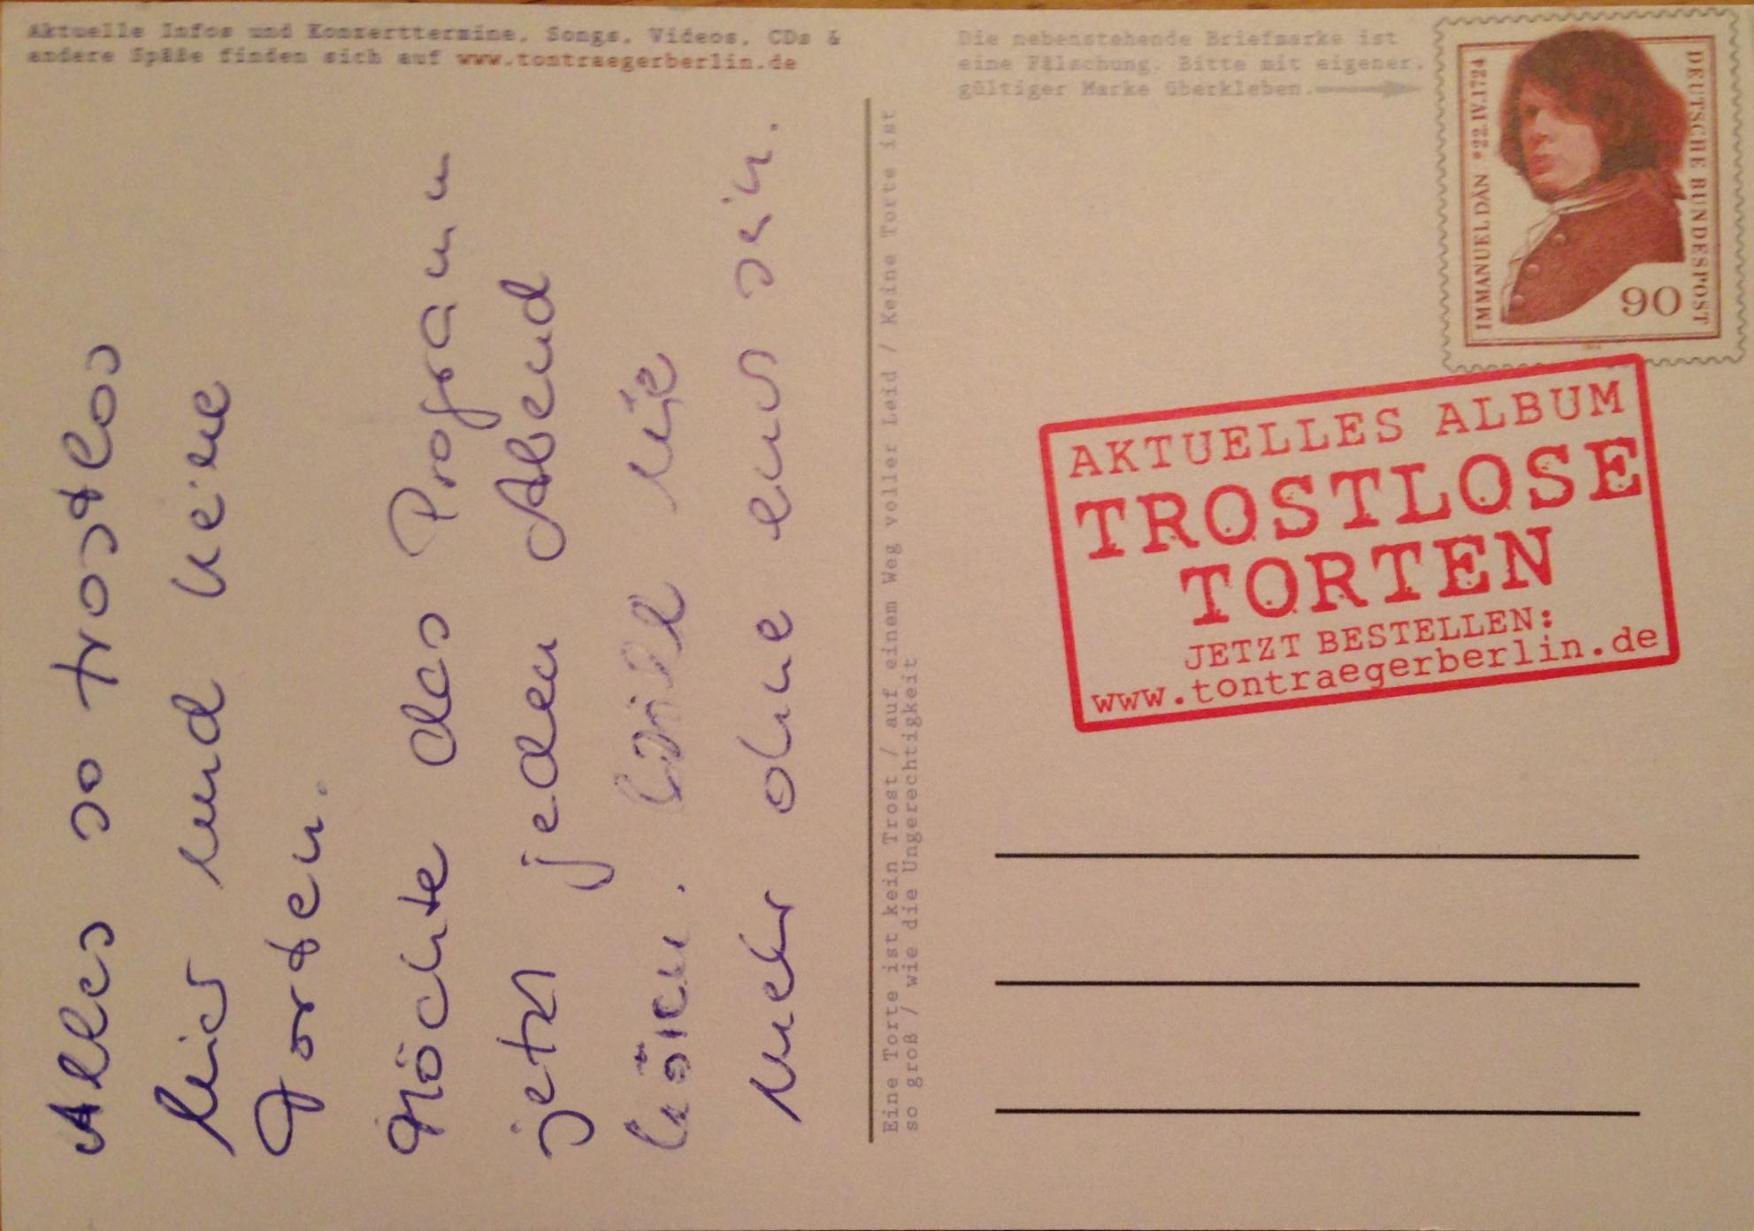 Aktuelle Infos und Konzerttermine, Songs, Videos, CDs &
andere Späße finden sich auf www.tontraegerberlin.de
Alles so trostlos
hier und keine
Torten.
Möchte das Programm
jetzt jeden Abend
hören. Will nie
mehr ohne euch sein.
Eine Torte ist kein Trost / auf einem Weg voller Leid / Keine Torte ist
so groß / wie die Ungerechtigkeit
Die nebenstehende Briefmarke ist
eine Fälschung. Bitte mit eigener,
gültiger Marke überkleben.
IMMANUEL DÄN *22.IV.1724
DEUTSCHE BUNDESPOST
90
AKTUELLES ALBUM
TROSTLOSE
TORTEN
JETZT BESTELLEN:
www.tontraegerberlin.de